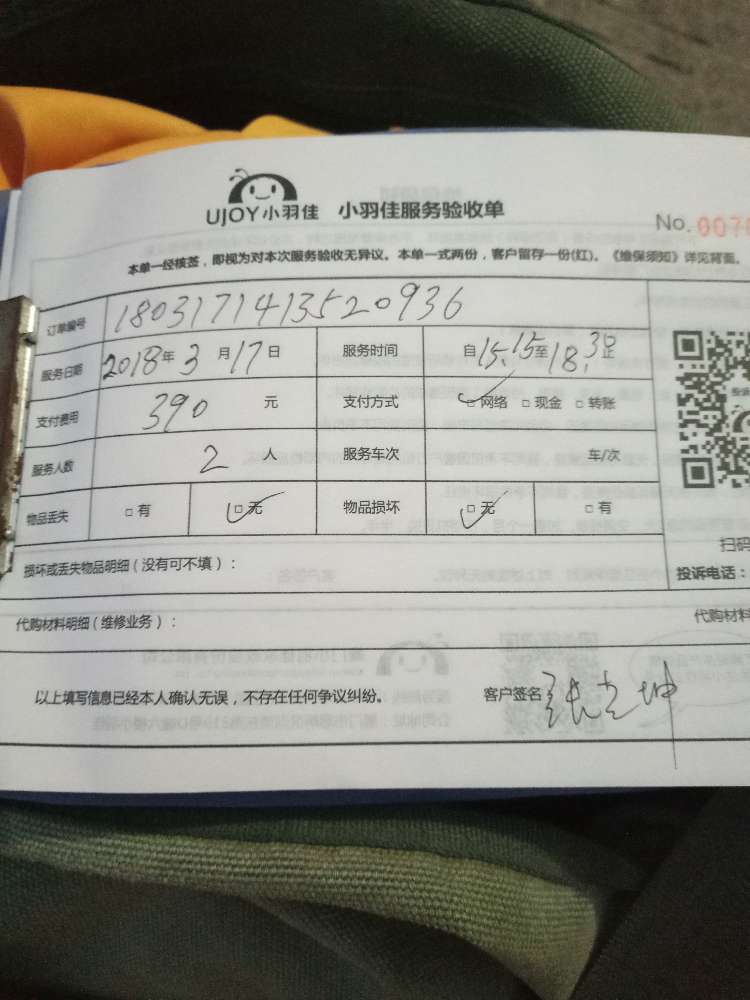 UJOY小羽佳 小羽佳服务验收单
No. 007
本单一经核签，即视为对本次服务验收无异议。本单一式两份，客户留存一份(红)。《维保须知》详见背面。
订单编号 1803171413520936
服务日期 2018年3月17日 服务时间 自15:15至18:30止
支付费用 390 元 支付方式 □网络 □现金 □转账
服务人数 2 人 服务车次 车/次
物品丢失 □有 □无 物品损坏 □无 □有
扫码
损坏或丢失物品明细（没有可不填）： 投诉电话：
代购材料明细（维修业务）： 代购材料
以上填写信息已经本人确认无误，不存在任何争议纠纷。 客户签名 张 坤